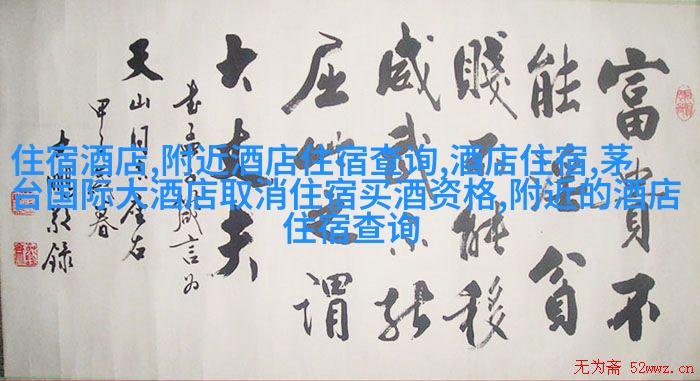 住宿酒店,附近酒店住宿查询,酒店住宿,茅
台国际大酒店取消住宿买酒资格,附近的酒店
住宿查询
富貴不
能淫貧
賤不能移
威武不能
屈此之謂
大丈夫
书孟子箴言为
天山同志座右
甲暮春
敬録
无为斋 52wwz.cn